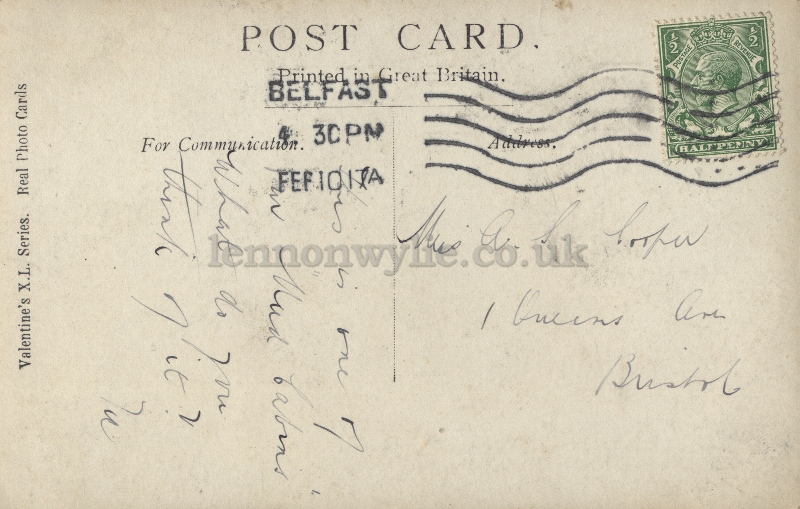 POST CARD.
Printed in Great Britain.
BELFAST
4 30PM
FEB 10 17
For Communication.
Address.
½ POSTAGE REVENUE ½
HALFPENNY
Valentine's X.L. Series. Real Photo Cards
This is one of
"Mud Cabins"
What do you
think of it?
Miss A Cooper
1 Queens Ave
Bristol
lennonwylie.co.uk